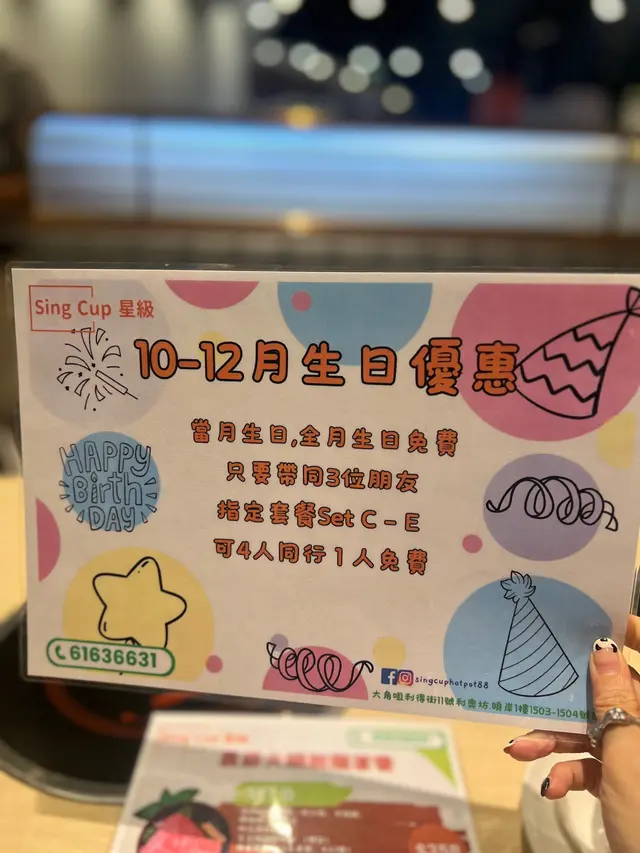 Sing Cup 星級
10-12月生日優惠
當月生日,全月生日免費
只要帶同3位朋友
指定套餐Set C – E
可4人同行1人免費
HAPPY
Birth
DAY
61636631
singcuphotpot88
大角咀利得街11號利奧坊.曉岸1樓1503-1504號
Sing Cup 星級